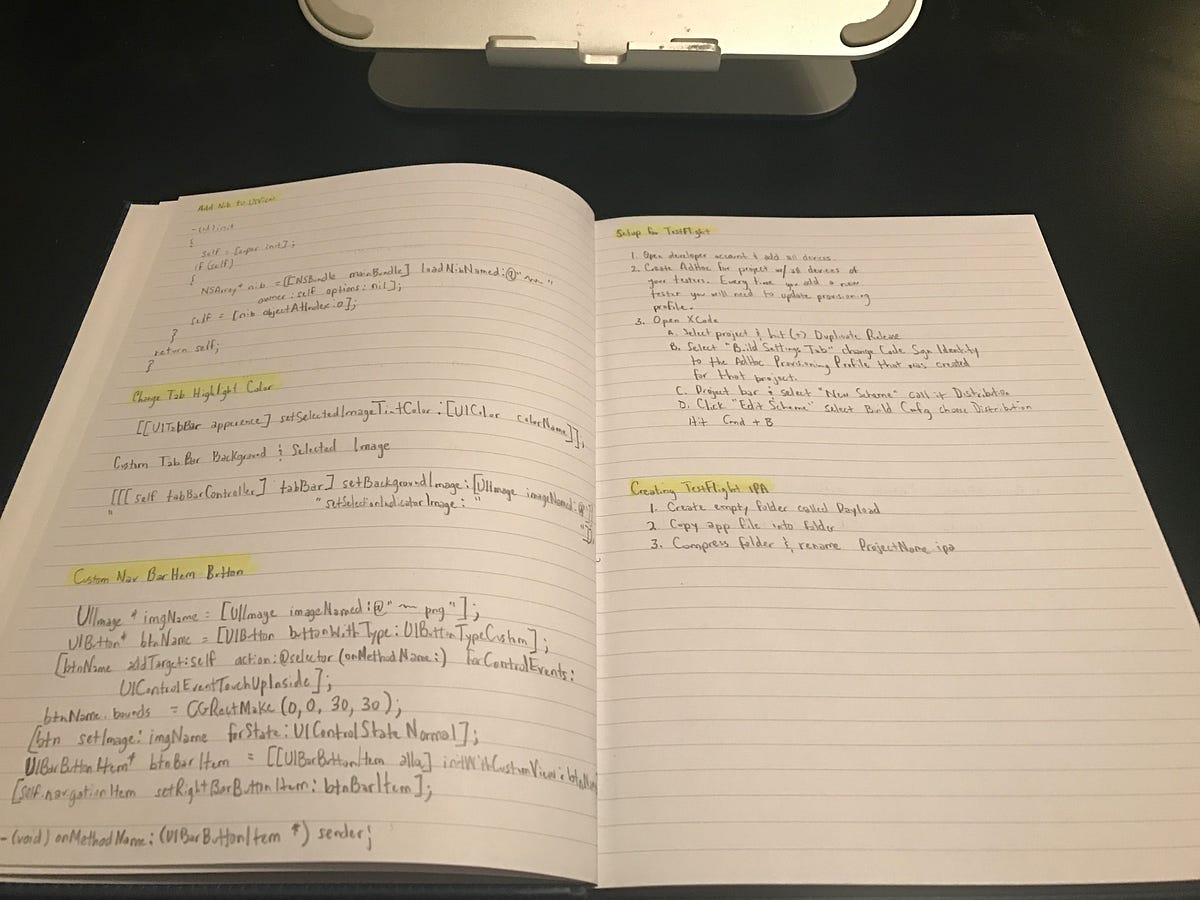 Add Nib to UIView
-(id)init
{
self = [super init];
if (self)
{
NSArray* nib = [[NSBundle mainBundle] loadNibNamed:@"~~"
owner:self options:nil];
self = [nib objectAtIndex:0];
}
return self;
}
Change Tab Highlight Color
[[UITabBar apperence] setSelectedImageTintColor:[UIColor colorName]];
Custom Tab Bar Background & Selected Image
[[[self tabBarController] tabBar] setBackgroundImage:[UIImage imageNamed:@""]]
" "setSelectionIndicatorImage: " "]];
Custom Nav BarItem Button
UIImage * imgName = [UIImage imageNamed:@"~ png"];
UIButton* btnName = [UIButton buttonWithType:UIButtonTypeCustom];
[btnName addTarget:self action:@selector(onMethodName:) forControlEvents:
UIControlEventTouchUpInside];
btnName.bounds = CGRectMake(0,0,30,30);
[btn setImage:imgName forState:UIControlStateNormal];
UIBarButtonItem* btnBarItem = [[UIBarButtonItem alloc] initWithCustomView:btnName
[self.navigationItem setRightBarButtonItem:btnBarItem];
-(void)onMethodName:(UIBarButtonItem *) sender;
Setup for TestFlight
1. Open developer account & add all devices.
2. Create AdHoc for project w/ all devices of
your testers. Every time you add a new
tester you will need to update provisioning
profile.
3. Open XCode
A. Select project & hit (+) Duplicate Release
B. Select "Build Settings Tab" change Code Sign Identity
to the AdHoc Provisioning Profile that was created
for that project.
C. Project bar & select "New Scheme" call it Distribution
D. Click "Edit Scheme" select Build Config choose Distribution
Hit Cmd + B
Creating TestFlight IPA
1. Create empty folder called Payload
2 Copy app file into folder
3. Compress folder & rename ProjectName.ipa